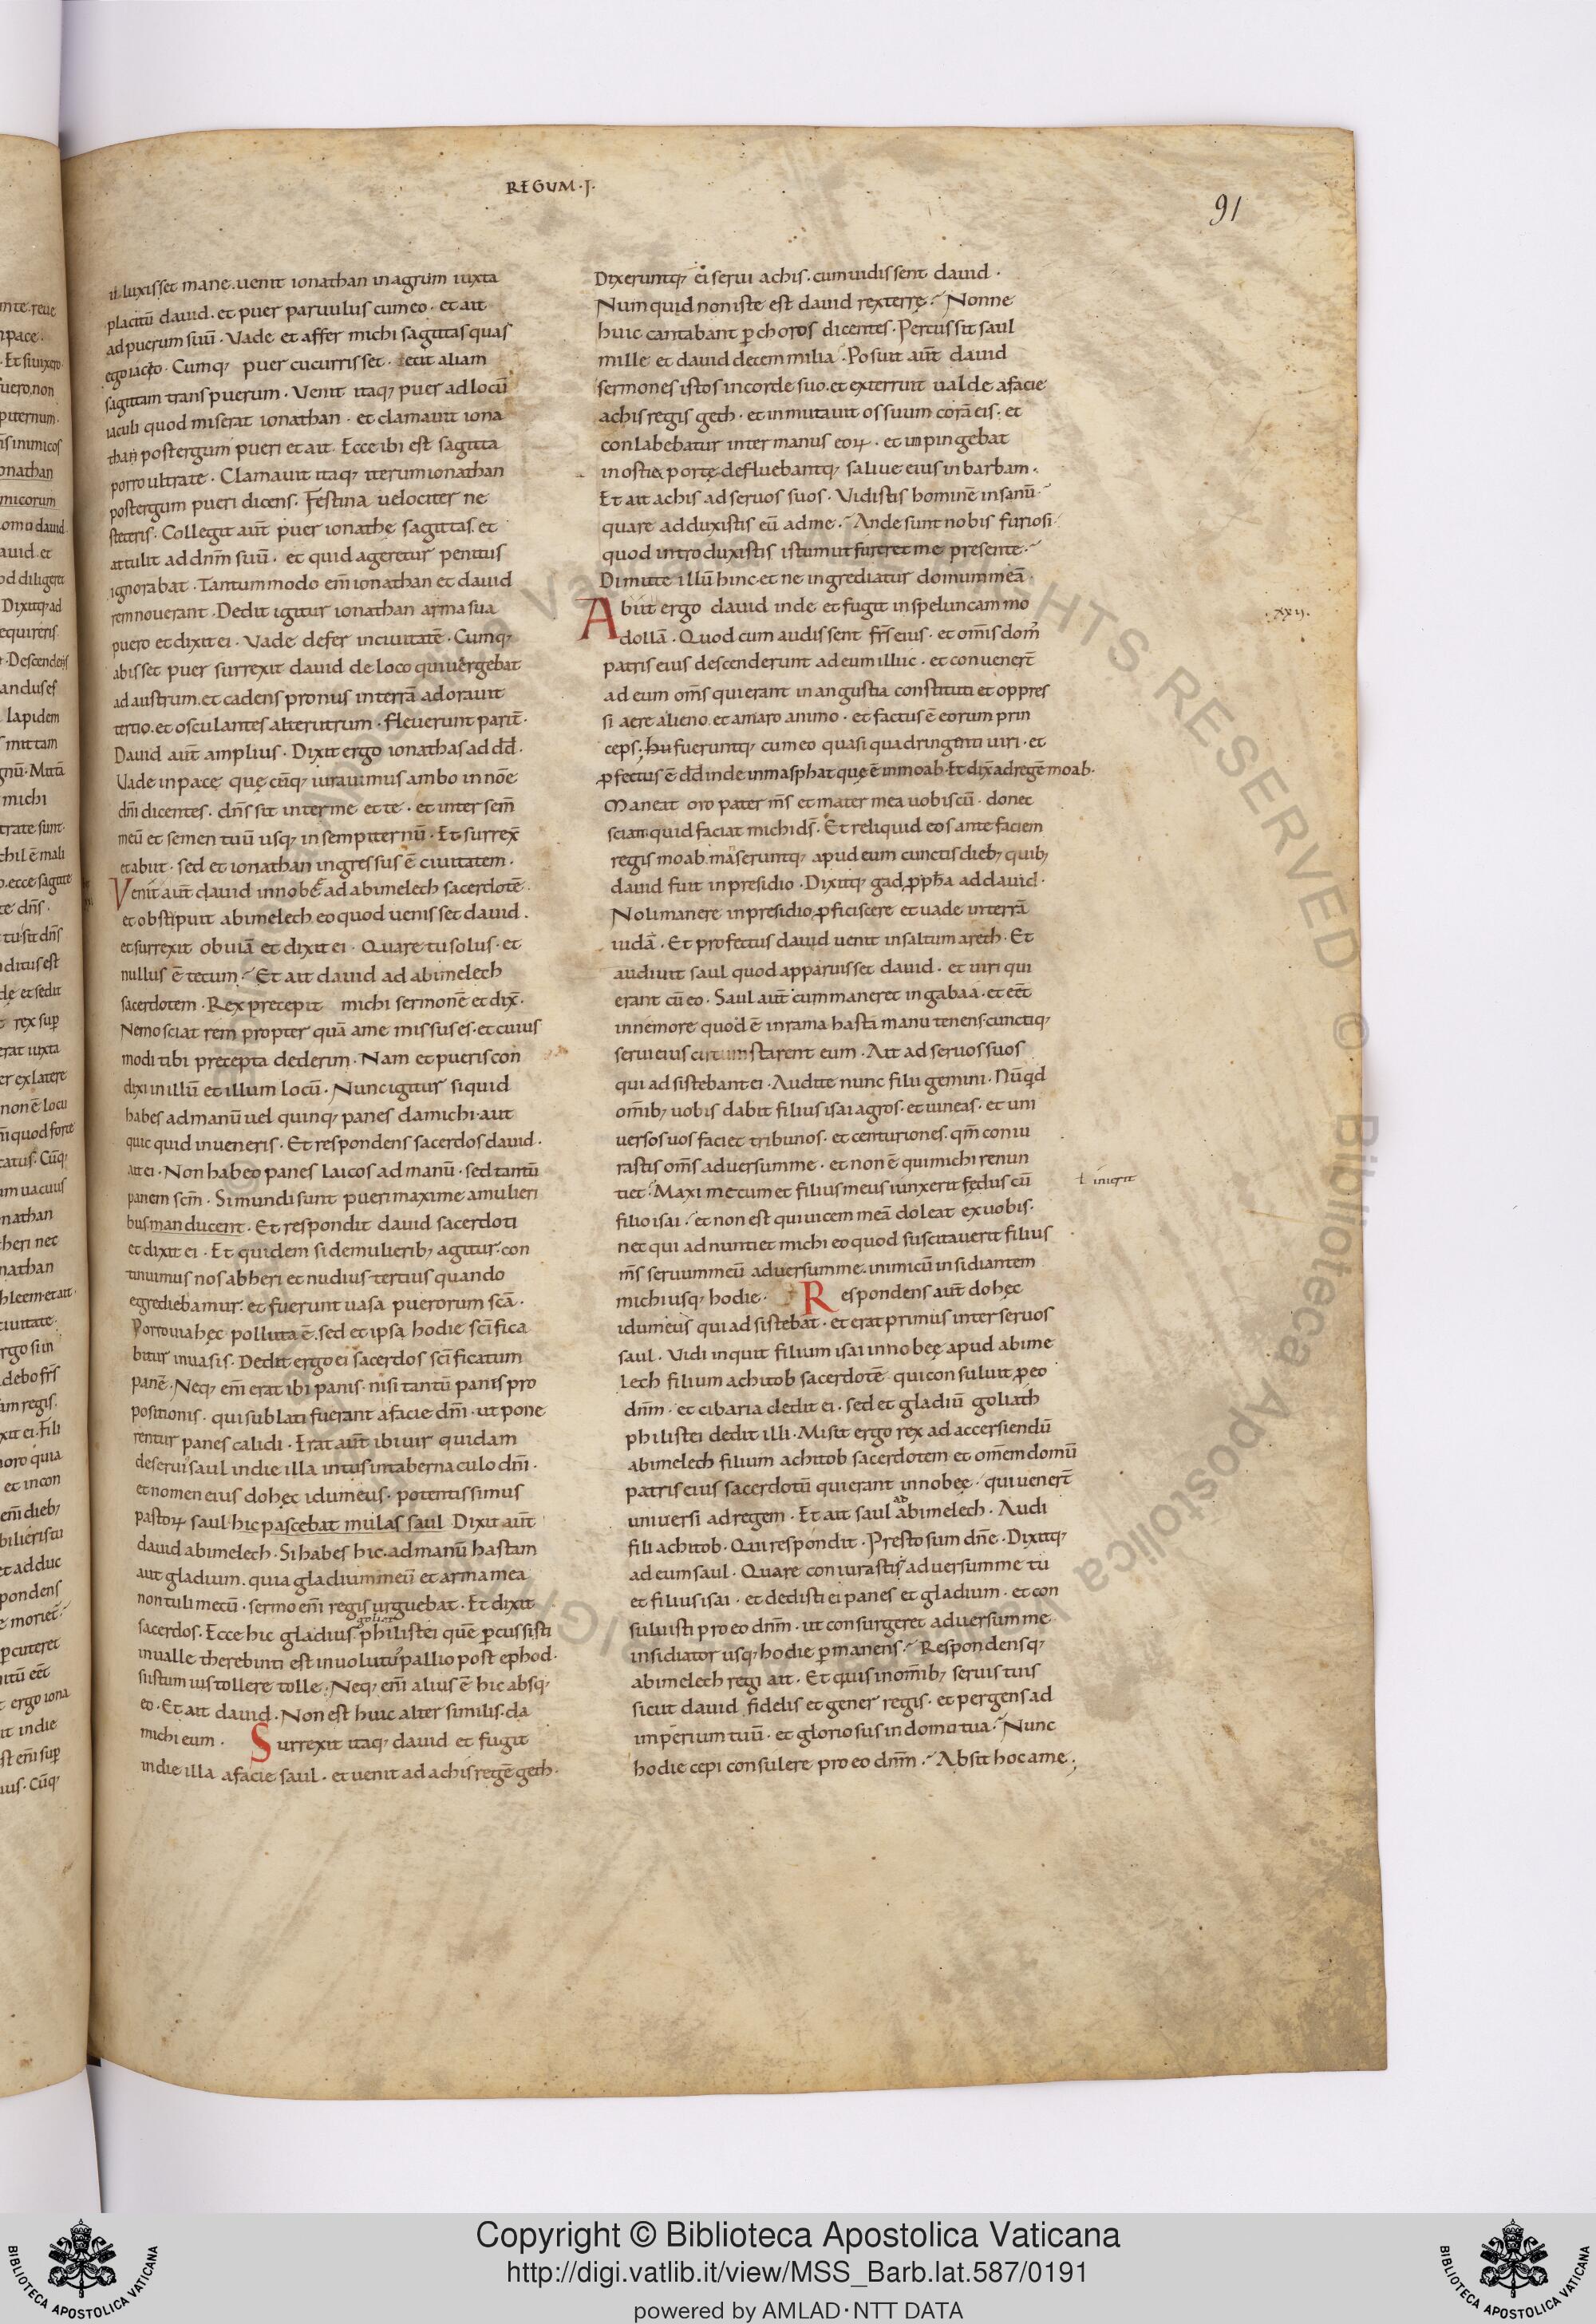 REGUM·I·
91
illuxisset mane. uenit ionathan in agrum iuxta
placitū dauid. et puer paruulus cum eo. et ait
ad puerum suū. Vade et affer michi sagittas quas
ego iacto. Cumq; puer cucurrisset. iecit aliam
sagittam trans puerum. Venit itaq; puer ad locū
iaculi quod miserat ionathan. et clamauit iona
than post ergum pueri et ait. Ecce ibi est sagitta
porro ultra te. Clamauit itaq; iterum ionathan
post ergum pueri dicens. Festina uelociter ne
steteris. Collegit aut̄ puer ionathe sagittas. et
attulit ad dn̄m suū. et quid ageretur penitus
ignorabat. Tantummodo em̄ ionathan et dauid
rem nouerant. Dedit igitur ionathan arma sua
puero et dixit ei. Vade defer in ciuitatē. Cumq;
abisset puer surrexit dauid de loco qui uergebat
ad austrum. et cadens pronus in terrā adorauit
tertio. et osculantes alterutrum. fleuerunt parit̄.
Dauid aut̄ amplius. Dixit ergo ionathas ad dd̄.
Vade in pace. quęcūq; iurauimus ambo in nōe
dn̄i dicentes. dn̄s sit inter me et te. et inter sem̄
meū et semen tuū usq; in sempiternū. Et surrex̄
et abiit. sed et ionathan ingressus ē ciuitatem.
Venit aut̄ dauid in nobē ad abimelech sacerdotē.
et obstipuit abimelech. eo quod uenisset dauid.
et surrexit obuiā et dixit ei. Quare tu solus. et
nullus ē tecum. Et ait dauid ad abimelech
sacerdotem. Rex precepit michi sermonē et dix̄.
Nemo sciat rem propter quā a me missus es. et cuius
modi tibi precepta dederim. Nam et pueris con
dixi in illū et illum locū. Nunc igitur si quid
habes ad manū uel quinq; panes da michi. aut
quicquid inueneris. Et respondens sacerdos dauid.
ait ei. Non habeo panes laicos ad manū. sed tantū
panem scm̄. Si mundi sunt pueri maxime a mulieri
bus manducent. Et respondit dauid sacerdoti
et dixit ei. Et quidem si de mulierib; agitur. con
tinuimus nos ab heri et nudius tertius quando
egrediebamur. et fuerunt uasa puerorum scā.
Porro uia hęc polluta ē. sed et ipsa hodie scīfica
bitur in uasis. Dedit ergo ei sacerdos scīficatum
panē. Neq; em̄ erat ibi panis. nisi tantū panis pro
positionis. qui sublati fuerant a facie dn̄i. ut pone
rentur panes calidi. Erat aut̄ ibi uir quidam
de serui saul in die illa intus in tabernaculo dn̄i.
et nomen eius dohęc idumeus. potentissimus
pastorꝝ saul hic pascebat mulas saul Dixit aut̄
dauid abimelech. Si habes hic. ad manū hastam
aut gladium. quia gladium meū et arma mea
non tuli mecū. sermo em̄ regis urguebat. Et dixit
goliat
sacerdos. Ecce hic gladius philistei quē ꝑcussisti
in ualle therebinti est inuolutus pallio post ephod.
si istum uis tollere tolle. Neq; em̄ alius ē hic absq;
eo. Et ait dauid. Non est huic alter similis. da
michi eum. Surrexit itaq; dauid et fugit
in die illa a facie saul. et uenit ad achis regē geth.
Dixeruntq; ei serui achis. cum uidissent dauid.
Numquid non iste est dauid rex terrę. Nonne
huic cantabant ꝑ choros dicentes. Percussit saul
mille et dauid decem milia. Posuit aut̄ dauid
sermones istos in corde suo. et exterruit ualde a facie
achis regis geth. et inmutauit os suum corā eis. et
conlabebatur inter manus eorꝝ. et inpingebat
in ostia portę. defluebantq; saliue eius in barbam.
Et ait achis ad seruos suos. Vidistis hominē insanū.
quare adduxistis eū ad me. An desunt nobis furiosi
quod introduxistis istum ut fureret me presente.
Dimitte illū hinc. et ne ingrediatur domum meā.
Abiit ergo dauid inde et fugit in speluncam mo
·xxii·
dollā. Quod cum audissent fr̄s eius. et om̄is dom;
patris eius descenderunt ad eum illuc. et conuenert̄
ad eum om̄s qui erant in angustia constituti et oppres
si aere alieno. et amaro animo. et factus ē eorum prin
ceps. hu fueruntq; cum eo quasi quadringenti uiri. et
ꝓfectus ē dd̄ inde in masphat quę ē in moab. Et dix̄ ad regē moab.
Maneat oro pater m̄s et mater mea uobiscū. donec
sciam quid faciat michi ds̄. Et reliquid eos ante faciem
regis moab. manseruntq; apud eum cunctis dieb; quib;
dauid fuit in presidio. Dixitq; gad ꝓph̄a ad dauid.
Noli manere in presidio. ꝓficiscere et uade in terrā
iudā. Et profectus dauid uenit in saltum areth. Et
audiuit saul quod apparuisset dauid. et uiri qui
erant cū eo. Saul aut̄ cum maneret in gabaa. et eēt
in nemore quod ē in rama hastā manu tenens. cunctiq;
serui eius circumstarent eum. Ait ad seruos suos
qui adsistebant ei. Audite nunc filii gemini. Nūqd
om̄ib; uobis dabit filius isai agros. et uineas. et uni
uersos uos faciet tribunos. et centuriones. qm̄ coniu
rastis om̄s aduersum me. et non ē qui michi renun
tiet. Maxime cum et filius meus iunxerit fędus cū
ł inierit
filio isai. et non est qui uicem meā doleat ex uobis.
nec qui adnuntiet michi eo quod suscitauerit filius
m̄s seruum meū aduersum me. inimicū insidiantem
michi usq; hodie. Respondens aut̄ dohęc
idumeus qui adsistebat. et erat primus inter seruos
saul. Vidi inquit filium isai in nobeę apud abime
lech filium achitob sacerdotē. qui consuluit ꝑ eo
dn̄m. et cibaria dedit ei. sed et gladiū goliath
philistei dedit illi. Misit ergo rex ad accersiendū
abimelech filium achitob sacerdotem et om̄em domū
patris eius sacerdotū qui erant in nobeę. qui uenert̄
ad
uniuersi ad regem. Et ait saul abimelech. Audi
fili achitob. Qui respondit. Presto sum dn̄e. Dixitq;
ad eum saul. Quare coniurastis aduersum me tu
et filius isai. et dedisti ei panes et gladium. et con
suluisti pro eo dn̄m. ut consurgeret aduersum me
insidiator usq; hodie ꝑmanens. Respondensq;
abimelech regi ait. Et quis in om̄ib; seruis tuis
sicut dauid fidelis et gener regis. et pergens ad
imperium tuū. et gloriosus in domo tua. Nunc
hodie cepi consulere pro eo dn̄m. Absit hoc a me;
Copyright © Biblioteca Apostolica Vaticana
http://digi.vatlib.it/view/MSS_Barb.lat.587/0191
powered by AMLAD·NTT DATA
BIBLIOTECA APOSTOLICA VATICANA
BIBLIOTECA APOSTOLICA VATICANA